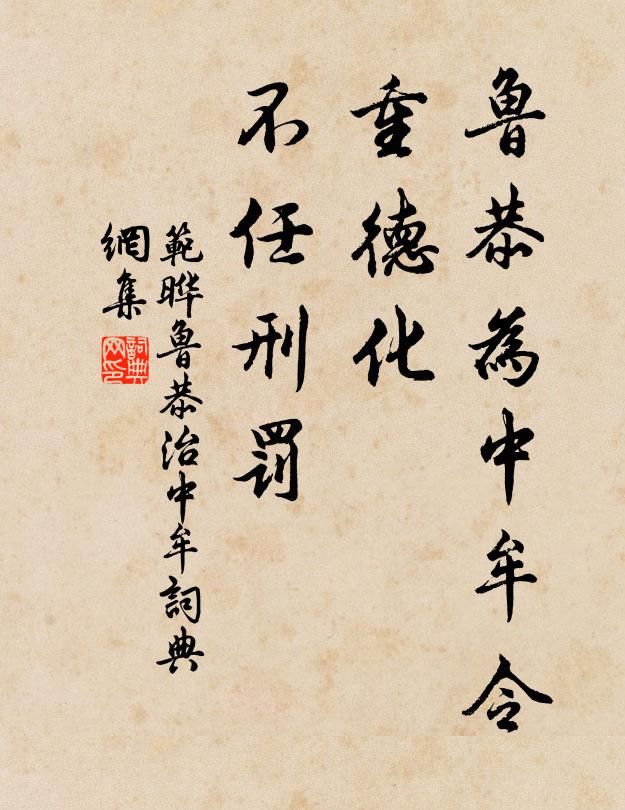 魯恭為中牟令
重德化
不任刑罰
範曄魯恭治中牟詞典
網集
詞典
网印